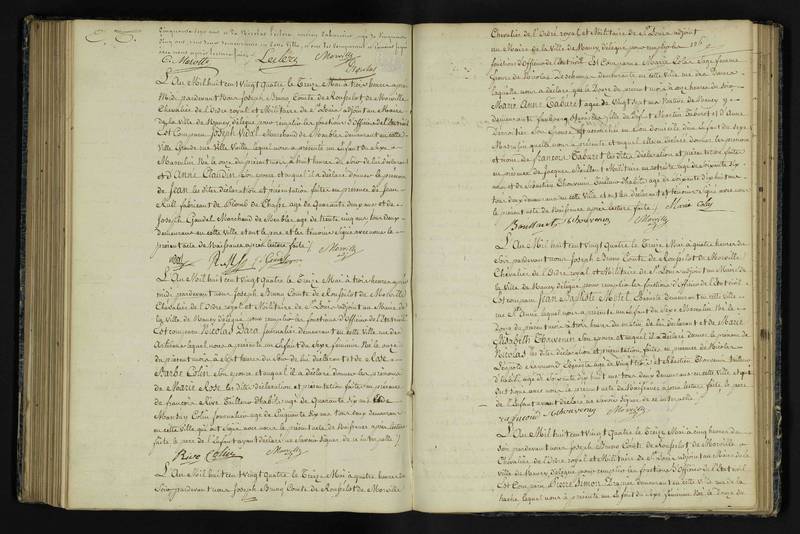 demeurans en cette Ville
C. Morotte Leclerc Morville
L'An Mil huit cent Vingt Quatre le Treize Mai à trois heures après
Midi pardevant Nous Joseph Bruno Comte de Rousselot de Morville
Chevalier de l'Ordre royal et Militaire de St Louis adjoint au Maire
de la Ville de Nancy délégué pour remplir les fonctions d'Officier de l'Etat civil
Est Comparu Joseph Vidil Marchand de Meubles demeurant en cette
Ville Grande rue Ville Vieille lequel nous a présenté un Enfant du Sexe
Masculin Né le onze du présent mois à huit heures du Soir de lui déclarant
et d'Anne Claudin Son épouse et auquel il a déclaré donner le prénom
de Jean les dites déclaration et présentation faites en présence de Jean
Rull fabricant de agé de Quarante Deux ans et de
Joseph Gaudel Marchand de Meubles agé de trente cinq ans tous deux
demeurans en cette Ville et ont le père et les témoins Signé avec nous le
présent acte de Naissance après lecture faite /. Morville
L'An Mil huit cent Vingt Quatre le Treize Mai à trois heures après
midi pardevant nous Joseph Bruno Comte de Rousselot de Morville
Chevalier de l'Ordre royal et Militaire de St Louis adjoint au Maire de
la Ville de Nancy délégué pour remplir les fonctions d'Officier de l'Etat civil
Est comparu Nicolas Bara journalier demeurant en cette Ville rue des
Artisans lequel nous a présenté un Enfant du Sexe féminin Né le onze
du présent mois à Sept heures du Soir de lui déclarant et de Rose
Barbe Colin Son épouse et auquel il a déclaré donner les prénoms
de Marie Rose les dites déclaration et présentation faites en présence
de françois Rive Tailleur d'habits agé de Quarante Six ans et de
Colin Journalier agé de Cinquante Six ans tous deux demeurans
en cette Ville qui ont Signé avec nous le présent acte de Naissance après lecture
faite le père de l'Enfant ayant déclaré ne Savoir Signer de ce interpellé /.
Rive Collin Morville
L'An Mil huit cent Vingt Quatre le Treize Mai à quatre heures du
Soir pardevant nous Joseph Bruno Comte de Rousselot de Morville
Chevalier de l'Ordre royal et Militaire de St Louis adjoint
au Maire de la Ville de Nancy délégué pour remplir les
fonctions d'Officier de l'Etat civil Est Comparue Marie Sage femme
demeurante en cette Ville rue
laquelle nous a déclaré que le Douze du présent mois à onze heures du Soir
Marie Anne Tabaret agée de Vingt Sept ans Native de Nancy y
demeurante faubourg fille de
Son Epouse est accouchée en Son domicile d'un Enfant du Sexe
Masculin qu'elle nous a présenté et auquel elle a déclaré donner les prénom
et nom de françois Tabaret les dites déclaration et présentation faites
en présence de Jacques Militaire en retraite agé de Soixante Six
ans et de Sébastien Thouvenin Tailleur d'habits agé de Soixante dix huit ans
tous deux demeurans en cette Ville et ont la déclarante et témoins Signé avec nous
le présent acte de Naissance après lecture faite /. Marie
Thouvenin Morville
L'An Mil huit cent Vingt Quatre le Treize Mai à quatre heures du
Soir pardevant nous Joseph Bruno Comte de Rousselot de Morville
Chevalier de l'Ordre royal et Militaire de St Louis adjoint au Maire de
la Ville de Nancy délégué pour remplir les fonctions d'Officier de l'Etat civil
Est comparu Jean Baptiste demeurant en cette Ville
rue St lequel nous a présenté un Enfant du Sexe Masculin Né le
Douze du présent mois à trois heures du matin de lui déclarant et de Marie
Elisabeth Thouvenin Son épouse et auquel il a déclaré donner le prénom de
Nicolas les dites déclaration et présentation faites en présence de Nicolas
Léopold agé de Vingt trois ans et Sébastien Thouvenin Tailleur
d'habits agé de Soixante dix huit ans tous deux demeurans en cette Ville et qui
ont Signé avec nous le présent acte de Naissance après lecture faite le père
de l'Enfant ayant déclaré ne Savoir Signer de ce interpellé /.
Thouvenin Morville
L'An Mil huit cent Vingt Quatre le Treize Mai à cinq heures du
Soir pardevant nous Joseph Bruno Comte de Rousselot de Morville
Chevalier de l'Ordre royal et Militaire de St Louis adjoint au Maire de la
Ville de Nancy délégué pour remplir les fonctions d'Officier de l'Etat civil
Est Comparu Pierre Simon demeurant en cette Ville rue de la
hache lequel nous a présenté un Enfant du Sexe féminin Né le Douze du